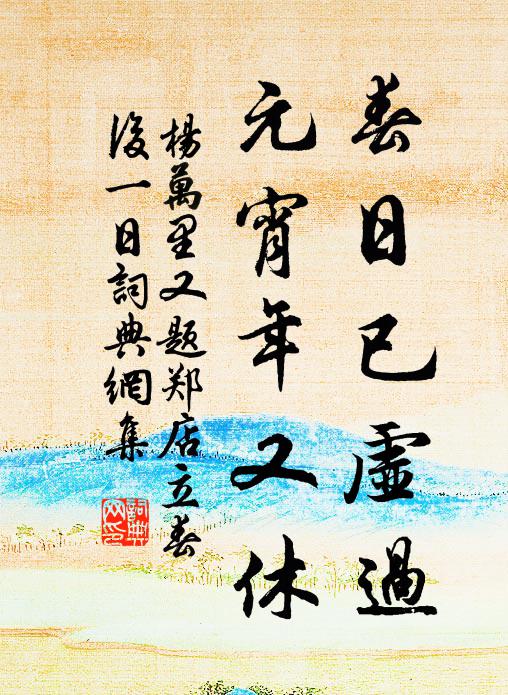 春日已虛過
元宵年又休
楊萬里又题郑店立春
後一日詞典網集
詞典
網印